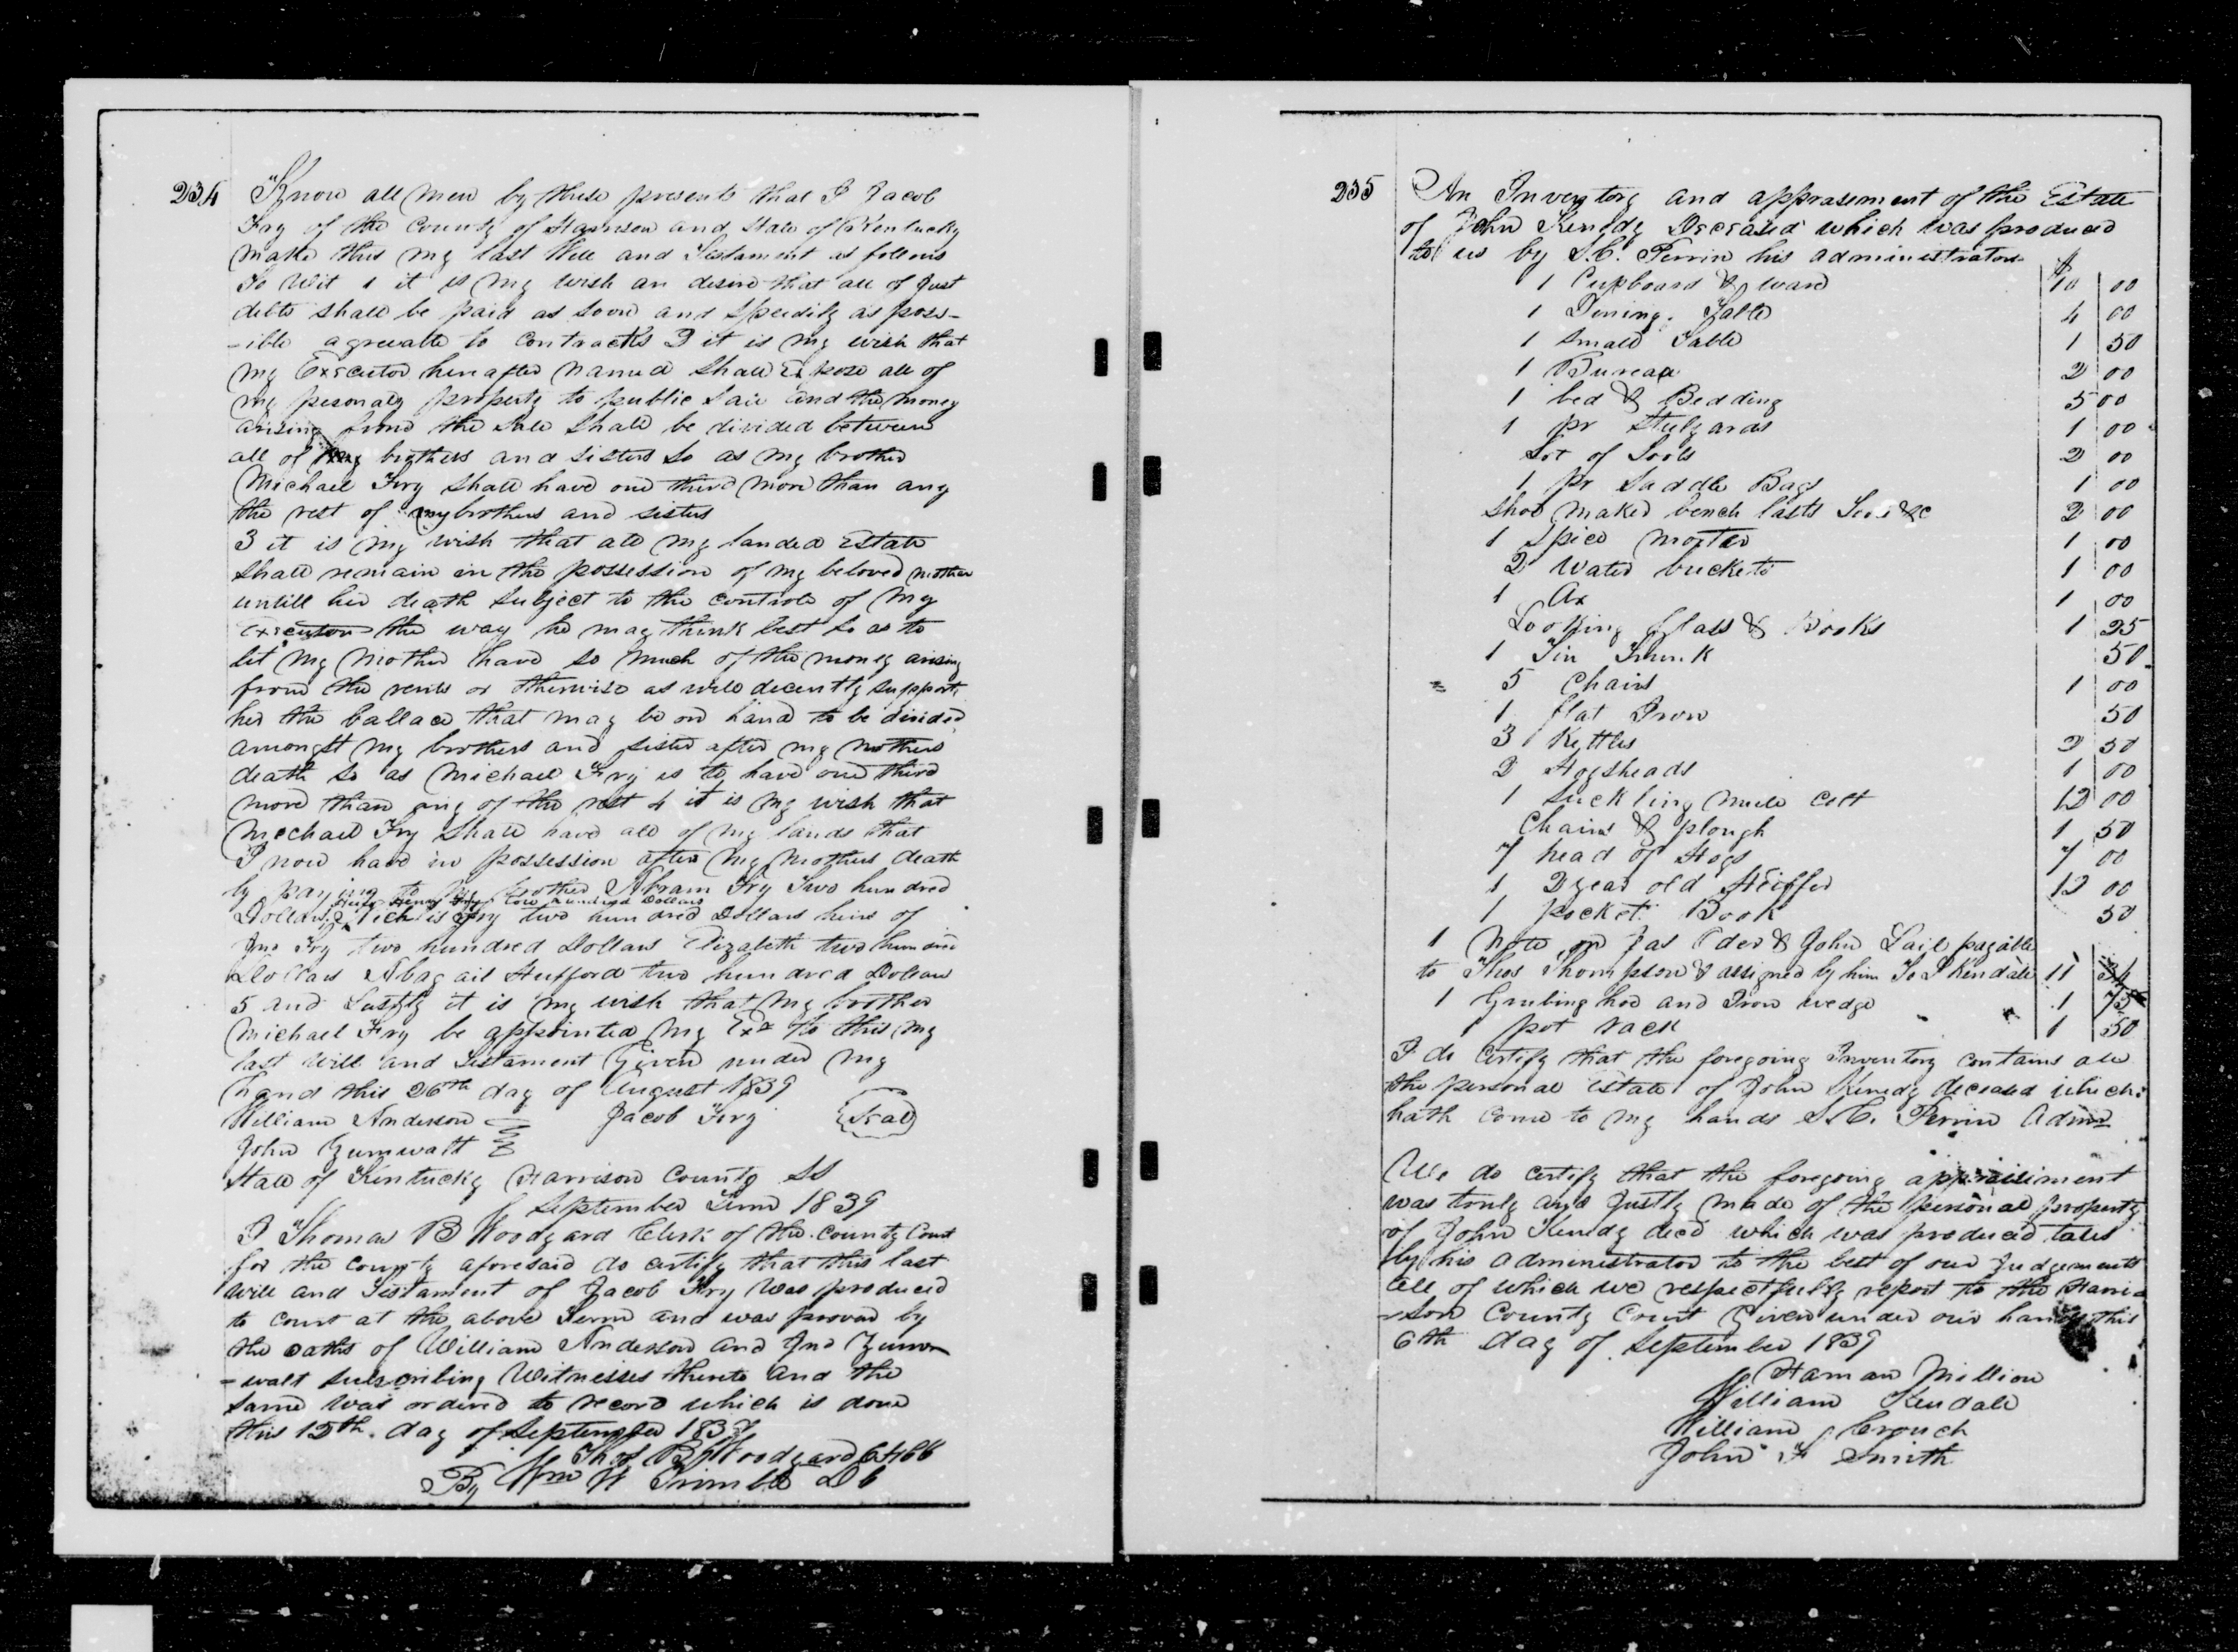 234
Know all men by these presents that I Jacob
Fry of the County of Harrison and State of Kentucky
make this my last Will and Testament as follows
To Wit 1 it is my wish an desire that all of Just
debts shall be paid as soon and speedily as poss-
-ible agreeable to contracts 2 it is my wish that
my Executor hereafter named shall expose all of
my personaly property to public sale and the money
arising from the sale shall be divided between
all of my brothers and sisters so as my brother
Michael Fry shall have one third more than any
the rest of my brothers and sisters
3 it is my wish that all my landed Estate
shall remain in the possession of my beloved mother
untill her death subject to the controle of my
Executor the way he may think best so as to
let my mother have so much of the money arising
from the rents or otherwise as will decently support
her the ballace that may be on hand to be divided
amongst my brothers and sister after my mothers
death so as Michael Fry is to have one third
more than any of the rest 4 it is my wish that
Mechael Fry shall have all of my lands that
I now have in possession after my mothers death
by paying to my brother Abram Fry Two hundred
Heirs Henry Fry two hundred Dollars
Dollars Fry two hundred Dollars heirs of
Jno Fry two hundred Dollars Elizabeth two hundred
Dollars Abagail Hufford two hundred Dollars
5 and Lastly it is my wish that my brother
Michael Fry be appointed my Exr to this my
last Will and Testament Given under my
hand this 26th day of August 1839
William Anderson Jacob Fry (Seal)
John Zumwalt
State of Kentucky Harrison County Sct
September Term 1839
I Thomas B Woodyard Clerk of the County Court
for the County aforesaid do certify that this last
will and Testament of Jacob Fry was produced
to court at the above Term and was proved by
the oaths of William Anderson and Jno Zum
-walt subscribing Witnesses thereto and the
same was ordered to record which is done
this 12th. day of September 1839
Thos B Woodyard
By Wm W Trimble DC
235
An Inventory and apprasement of the Estate
of John Kenedy Deceased which was produced
to us by L.C. Perrin his administrator
$
1 Cupboard & ware 10 00
1 Dining Table 4 00
1 small Table 1 50
1 Bureau 2 00
1 bed & Bedding 5 00
1 pr Stulyards 1 00
Lot of Tools 2 00
1 pr Saddle Bags 1 00
shoe maker bench lasts &c 2 00
1 Spice morter 1 00
2 Water buckets 1 00
1 Ax 1 00
Looking glass & Books 1 25
1 Tin Trunk 50
5 Chairs 1 00
1 flat Iron 50
3 Kettles 2 50
2 Hogsheads 1 00
1 suckling mule colt 12 00
Chains & plough 1 50
7 head of Hogs 7 00
1 2 year old Heiffer 12 00
1 pocket Book 50
1 Note on Jas & John Lail payable
to Thos Thompson & assigned by him To J Kendale 11 34
1 Grubing hoe and Iron wedge 1 75
1 pot rack 1 50
I do certify that the foregoing Inventory contains all
the personal Estate of John Kenedy deceased which
hath come to my hands L.C. Perrin Admr
We do certify that the foregoing appraisiment
was truly and Justly made of the personal property
of John Kenedy decd which was produced to us
by his administrator to the best of our Judgements
all of which we respectfully report to the Harri-
-son County Court Given under our hands this
6th day of September 1839
Haman Million
William Kendall
William Crouch
John F Smith